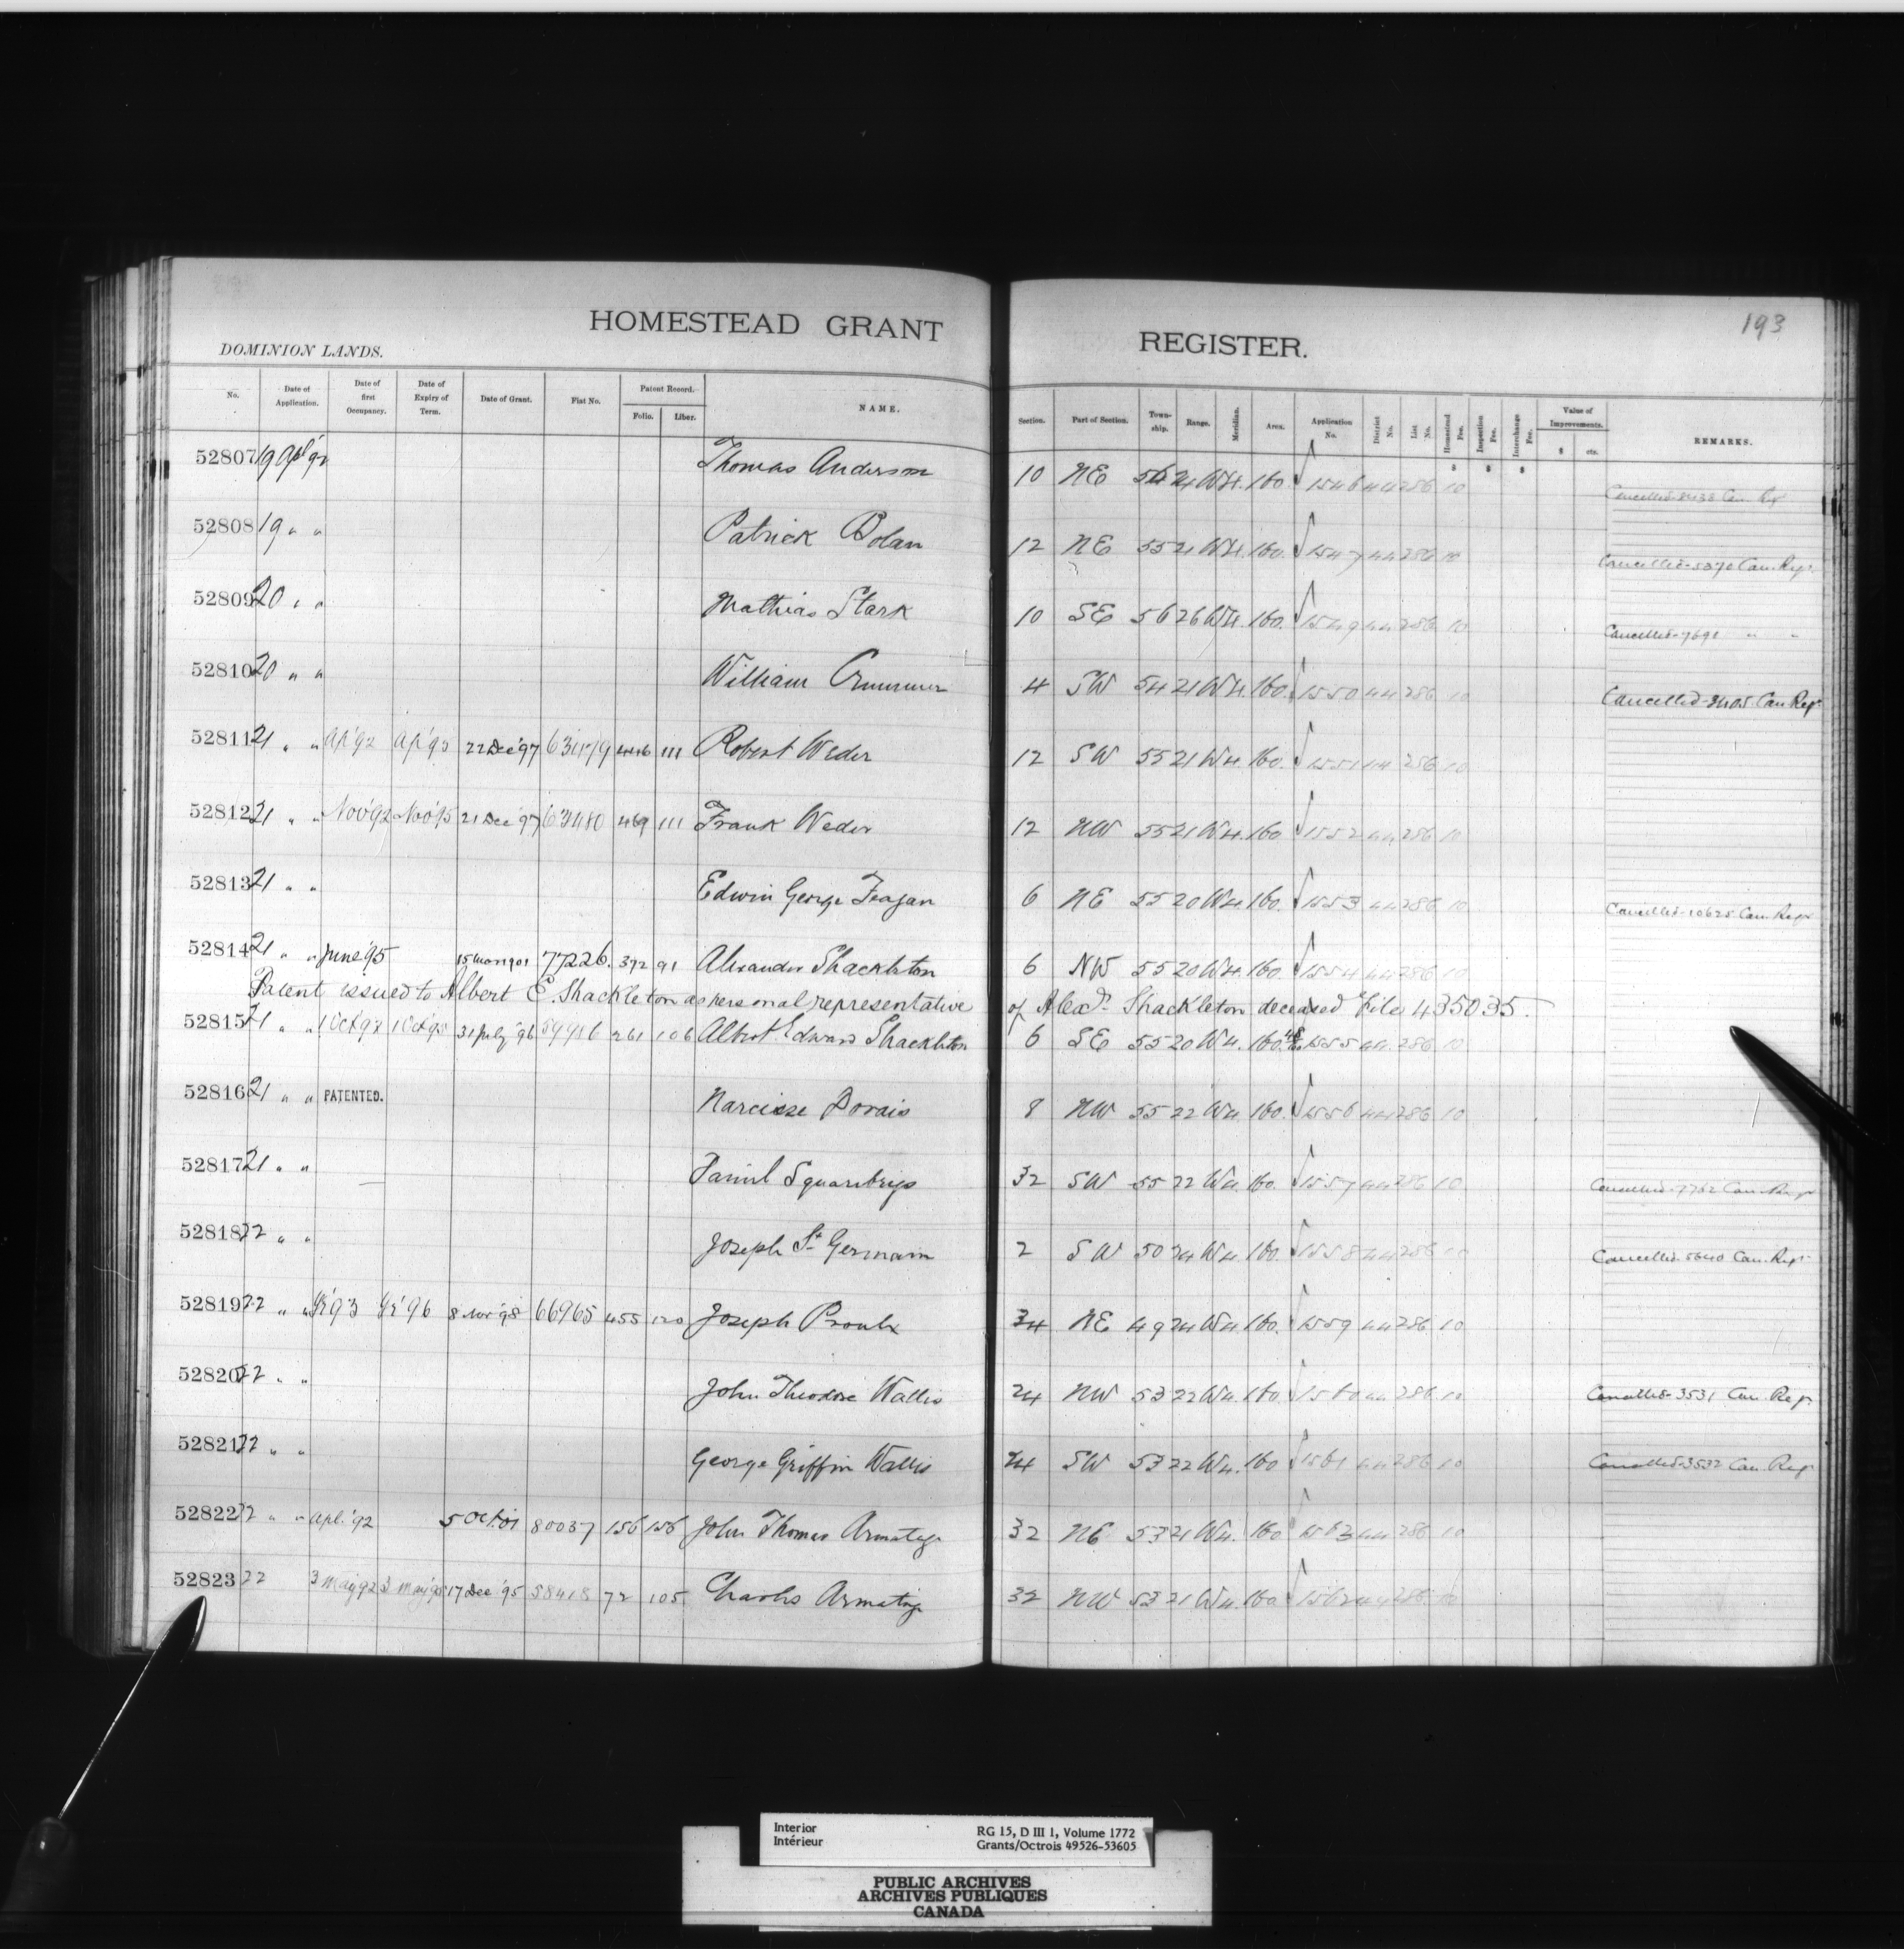 193
HOMESTEAD GRANT REGISTER.
DOMINION LANDS.
No. Date of Application. Date of first Occupancy. Date of Expiry of Term. Date of Grant. Fiat No. Patent Record. Folio. Liber. NAME. Section. Part of Section. Town-ship. Range. Meridian. Area. Application No. District No. List No. Homestead Fee. Inspection Fee. Interchange Fee. Value of Improvements. $ cts. REMARKS.
52807 19 Apl '92 Thomas Anderson 10 NE 21 W4. 160. 1546 44 286 10 Cancelled Can. Reg.
52808 19 " " Patrick Bolan 12 NE 55 21 W4. 160. 1547 44 286 10 Cancelled-5370 Can. Reg.
52809 20 " " Mathias Stark 10 SE 56 26 W4. 160. 1549 44 286 10 Cancelled-7691 " "
52810 20 " " William 4 SW 54 21 W4. 160. 1550 44 286 10 Cancelled-3405 Can. Reg.
52811 21 " " Ap '92 Ap '95 22 Dec '97 63479 446 111 Robert Weder 12 SW 55 21 W4. 160. 1551 44 286 10
52812 21 " " Nov '92 Nov '95 21 Dec '97 63480 469 111 Frank Weder 12 NW 55 21 W4. 160 1552 44 286 10
52813 21 " " Edwin George Feagan 6 NE 55 20 W4. 160. 1553 44 286 10 Cancelled-10625 Can. Reg.
52814 21 " " June '95 15 Mar 1901 77226. 392 91 Alexander Shackleton 6 NW 55 20 W4. 160. 1554 44 286 10
Patent issued to Albert E. Shackleton as personal representative of Alexr. Shackleton deceased File 435035.
52815 21 " " 1 Oct '92 1 Oct '95 31 July '96 59916 261 106 Albert Edward Shackleton 6 SE 55 20 W4. 160. 1555 44 286 10
52816 21 " " PATENTED. Narcisse Dorais 8 NW 55 22 W4. 160. 1556 44 286 10
52817 21 " " Daniel 32 SW 55 22 W4. 160. 1557 44 286 10 Cancelled-7762 Can. Reg.
52818 22 " " Joseph St Germain 2 SW 50 24 W4. 160. 1558 44 286 10 Cancelled-5640 Can. Reg.
52819 22 " " '93 '96 8 Nov '98 66965 455 120 Joseph Proulx 34 NE 49 24 W4. 160. 1559 44 286 10
52820 22 " " John Theodore Wallis 24 NW 53 22 W4. 160 1560 44 286 10 Cancelled-3531 Can. Reg.
52821 22 " " George Griffin Wallis 24 SW 53 22 W4. 160 1561 44 286 10 Cancelled-3532 Can. Reg.
52822 22 " " Apl. '92 5 Oct. 01 80037 156 156 John Thomas Armatage 32 NE 53 21 W4. 160 1563 44 286 10
52823 22 3 May 92 3 May '95 17 Dec '95 58418 72 105 Charles Armatage 32 NW 53 21 W4. 160 1562 44 286 10
Interior
Intérieur
RG 15, D III 1, Volume 1772
Grants/Octrois 49526-53605
PUBLIC ARCHIVES
ARCHIVES PUBLIQUES
CANADA